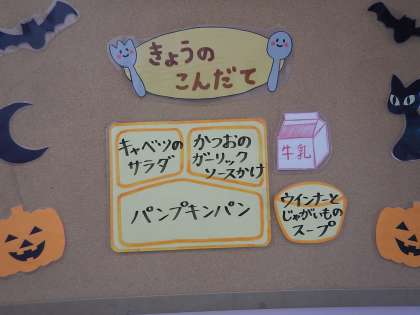 きょうの
こんだて
キャベツの
サラダ
かつおの
ガーリック
ソースかけ
パンプキンパン
牛乳
ウインナーと
じゃがいもの
スープ